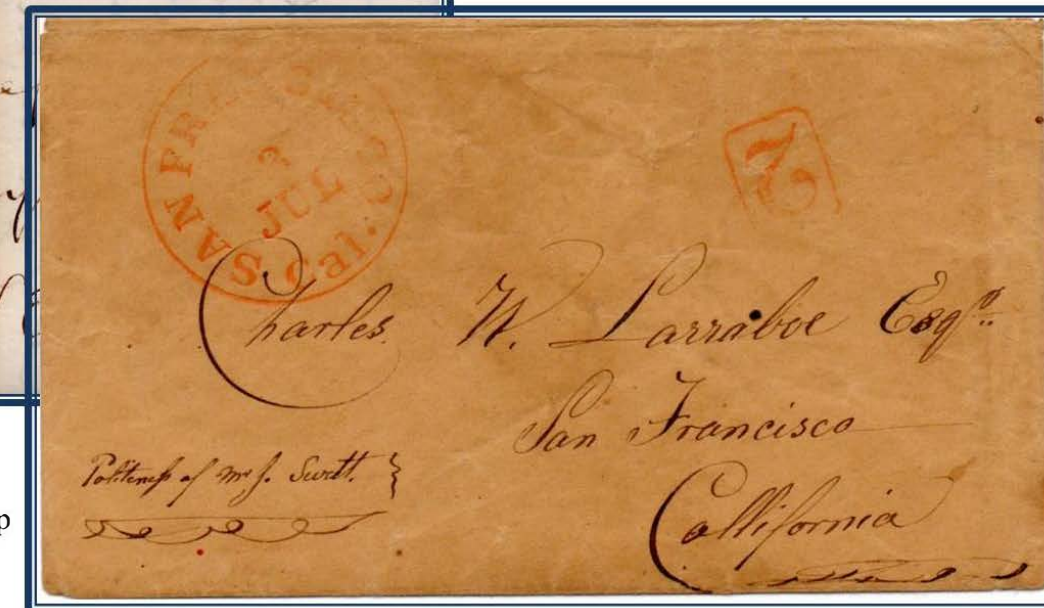 SAN FRANCISCO Cal.
2
JUL
2
Charles W. Larrabee Esqr.
San Francisco
Collifornia
Politeness of Mr J. Swett.
p